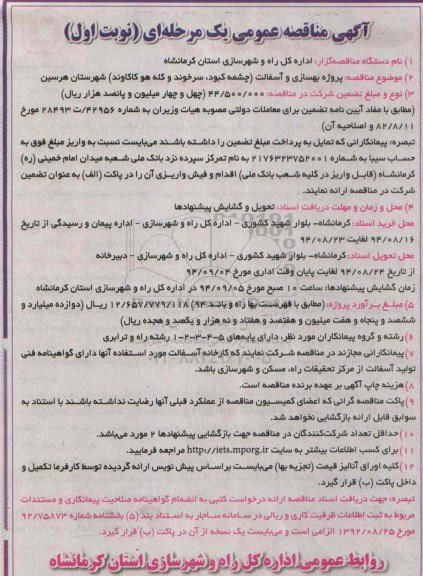 آگهی مناقصه عمومی یک مرحله‌ای (نوبت اول)
۱) نام دستگاه مناقصه‌گزار: اداره کل راه و شهرسازی استان کرمانشاه
۲) موضوع مناقصه: پروژه بهسازی و آسفالت (چشمه کبود، سرخوند و کله هو کاکاوند) شهرستان هرسین
۳) نوع و مبلغ تضمین شرکت در مناقصه: ۴۴/۵۰۰/۰۰۰ (چهل و چهار میلیون و پانصد هزار ریال)
(مطابق با مفاد آیین نامه تضمین برای معاملات دولتی مصوبه هیات وزیران به شماره ۴۲۹۵۶/ت ۲۸۴۹۳ مورخ
۸۲/۸/۱۱ و اصلاحیه آن)
تبصره: پیمانکارانی که تمایل به پرداخت مبلغ تضمین را داشته باشند می‌بایست نسبت به واریز مبلغ فوق به
حساب سیبا به شماره ۲۱۷۶۲۳۳۷۵۲۰۰۱ به نام تمرکز سپرده نزد بانک ملی شعبه میدان امام خمینی (ره)
کرمانشاه (قابل واریز در کلیه شعب بانک ملی) اقدام و فیش واریزی آن را در پاکت (الف) به عنوان تضمین
شرکت در مناقصه ارائه نمایند.
۴) محل و زمان و مهلت دریافت اسناد: تحویل و گشایش پیشنهادها
محل خرید اسناد: کرمانشاه- بلوار شهید کشوری - اداره کل راه و شهرسازی - اداره پیمان و رسیدگی از تاریخ
۹۴/۰۸/۱۶ لغایت ۹۴/۰۸/۲۳
محل تحویل اسناد: کرمانشاه- بلوار شهید کشوری - اداره کل راه و شهرسازی - دبیرخانه
از تاریخ ۹۴/۰۸/۲۴ لغایت پایان وقت اداری مورخ ۹۴/۰۹/۰۴
زمان گشایش پیشنهادها: ساعت ۱۰ صبح مورخ ۹۴/۰۹/۰۵ در اداره کل راه و شهرسازی استان کرمانشاه
۵) مبلغ برآورد پروژه: (مطابق با فهرست بها راه و باند ۹۴) ۱۲/۶۵۷/۷۷۹/۱۱۸ ریال (دوازده میلیارد و
ششصد و پنجاه و هفت میلیون و هفتصد و هفتاد و نه هزار و یکصد و هجده ریال)
۶) رشته و گروه پیمانکاران مورد نظر: دارای پایه‌های ۵-۴-۳-۲-۱ رشته راه و ترابری
۷) پیمانکارانی مجازند در مناقصه شرکت نمایند که کارخانه آسفالت مورد استفاده آنها دارای گواهینامه فنی
تولید آسفالت از مرکز تحقیقات راه، مسکن و شهرسازی باشد.
۸) هزینه چاپ آگهی بر عهده برنده مناقصه است.
۹) پاکت مناقصه گرانی که اعضای کمیسیون مناقصه از عملکرد قبلی آنها رضایت نداشته باشند با استناد به
سوابق قابل ارائه بازگشایی نخواهد شد.
۱۰) حداقل تعداد شرکت‌کنندگان در مناقصه جهت بازگشایی پیشنهادها ۲ مورد می‌باشد.
۱۱) برای کسب اطلاعات بیشتر به سایت http://iets.mporg.ir مراجعه فرمایید.
۱۲) کلیه اوراق آنالیز قیمت (تجزیه بها) می‌بایست براساس پیش نویس ارائه گردیده توسط کارفرما تکمیل و
داخل پاکت (ب) قرار گیرد.
تبصره: جهت دریافت اسناد مناقصه ارائه درخواست کتبی به انضمام گواهینامه صلاحیت پیمانکاری و مستندات
مربوط به ثبت اطلاعات ظرفیت کاری و ریالی در سامانه ساجار به استناد بند (۵) بخشنامه شماره ۹۲/۷۵۸۷۳
مورخ ۱۳۹۲/۰۸/۲۵ الزامی است و می‌بایست یک نسخه از آن در پاکت (ب) قرار گیرد.
روابط عمومی اداره کل راه و شهرسازی استان کرمانشاه